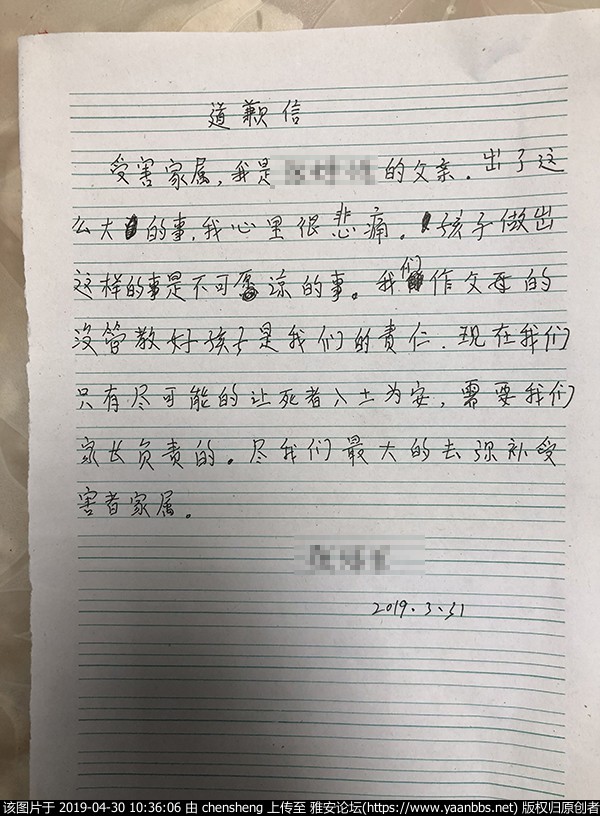 道歉信
受害家属,我是的父亲.出了这
么大的事,我心里很悲痛。孩子做出
这样的事是不可原谅的事。我们作父母的
没管教好孩子是我们的责任.现在我们
只有尽可能的让死者入土为安,需要我们
家长负责的。尽我们最大的去弥补受
害者家属。
2019.3.31
该图片于 2019-04-30 10:36:06 由 chensheng 上传至 雅安论坛(https://www.yaanbbs.net) 版权归原创者